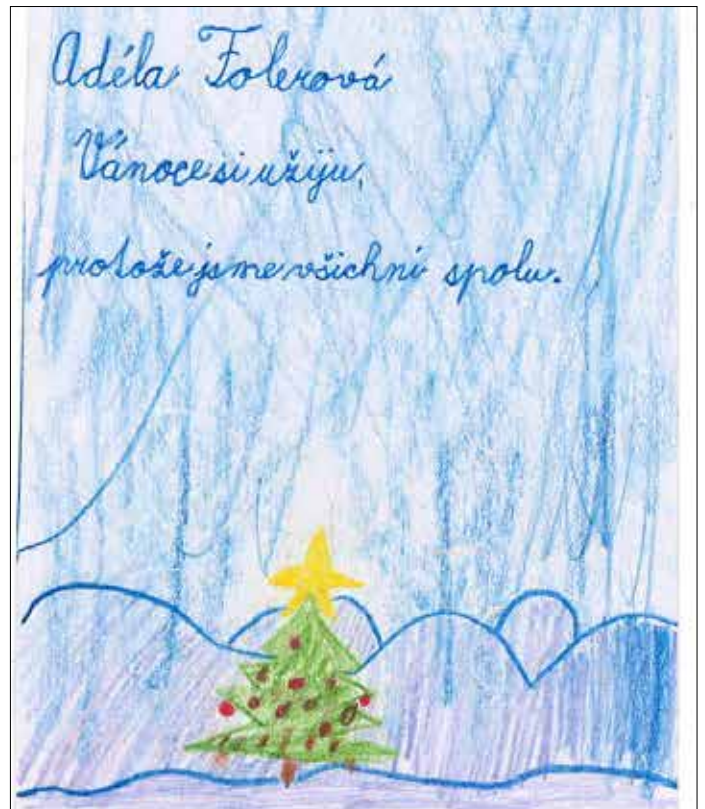 Adéla Folerová
Vánoce si užiju,
protože jsme všichni spolu.